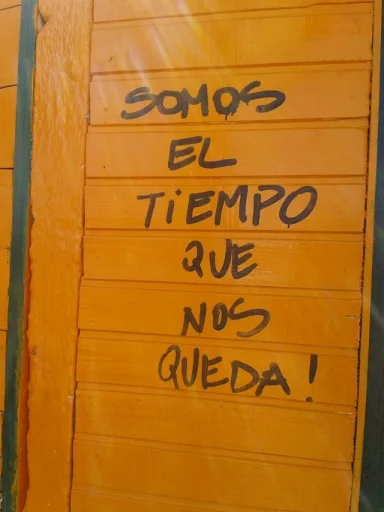 SOMOS
EL
TiEMPO
QUE
NOS
QUEDA!